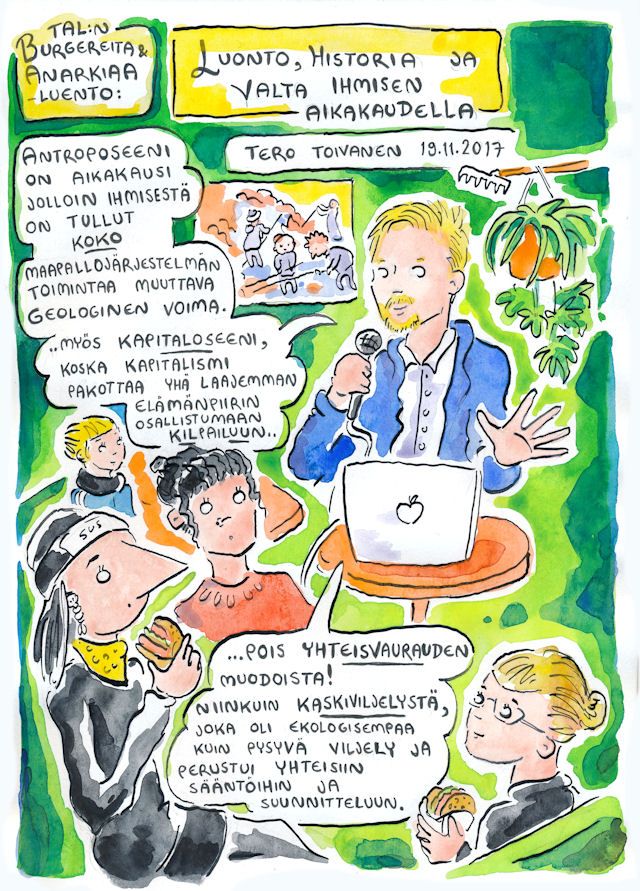 TAL:N
BURGEREITA &
ANARKIAA
-LUENTO:
LUONTO, HISTORIA JA
VALTA IHMISEN
AIKAKAUDELLA
TERO TOIVANEN 19.11.2017
ANTROPOSEENI
ON AIKAKAUSI
JOLLOIN IHMISESTÄ
ON TULLUT
KOKO
MAAPALLOJÄRJESTELMÄN
TOIMINTAA MUUTTAVA
GEOLOGINEN VOIMA.
..MYÖS KAPITALOSEENI,
KOSKA KAPITALISMI
PAKOTTAA YHÄ LAAJEMMAN
ELÄMÄNPIIRIN
OSALLISTUMAAN
KILPAILUUN..
SUS
...POIS YHTEISVAURAUDEN
MUODOISTA!
NIINKUIN KASKIVILJELYSTÄ,
JOKA OLI EKOLOGISEMPAA
KUIN PYSYVÄ VILJELY JA
PERUSTUI YHTEISIIN
SÄÄNTÖIHIN JA
SUUNNITTELUUN.